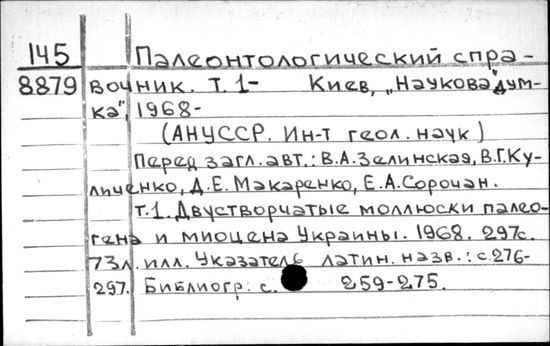 145 Палеонтологический спра-
8879 вочник. Т. 1- Киев, „Наукова дум-
ка", 1968-
(АНУССР. Ин-т геол. наук)
Перед загл. авт.: В.А. Зелинская, В.Г. Ку-
личенко, Д.Е. Макаренко, Е.А. Сорочан.
т. 1. Двустворчатые моллюски палео-
гена и миоцена Украины. 1968. 297с.
73л. илл. Указатель латин. назв.: с. 276-
297. Библиогр: с. 259-275.